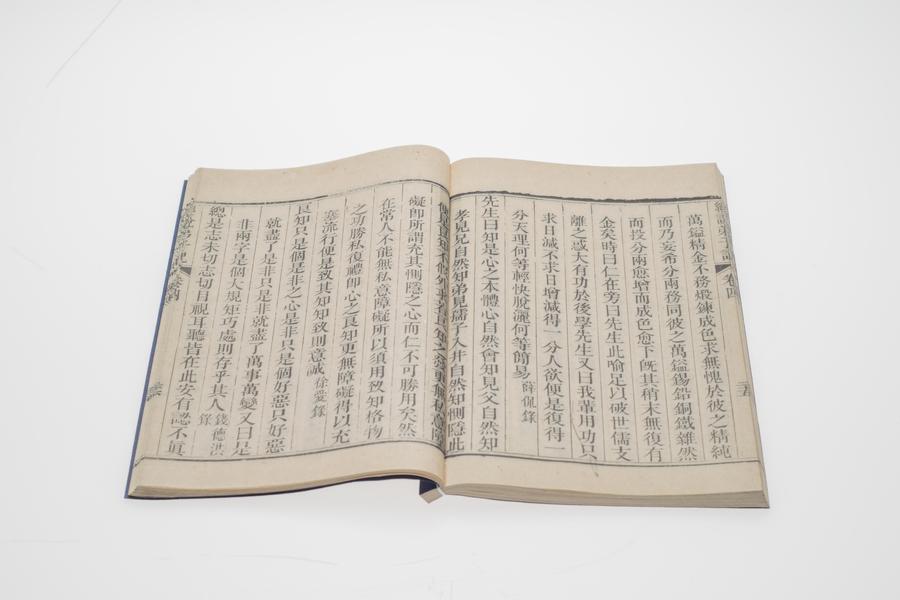 卷四
萬鎰精金不務煆鍊成色求無愧於彼之精純
而乃妄希分兩務同彼之萬鎰錫鉛銅鐵雜然
而投分兩愈增而成色愈下旣其稍末無復有
金矣時曰仁在旁曰先生此喻足以破世儒支
離之惑大有功於後學先生又曰我輩用功只
求日減不求日增減得一分人欲便是復得一
分天理何等輕快脫灑何等簡易 薛侃錄
先生曰知是心之本體心自然會知見父自然知
孝見兄自然知弟見孺子入井自然知惻隱此
便是良知不假外求若良知之發更無私意障
礙即所謂充其惻隱之心而仁不可勝用矣然
在常人不能無私意障礙所以須用致知格物
之功勝私復禮即心之良知更無障礙得以充
塞流行便是致其知知致則意誠 徐愛錄
良知只是個是非之心是非只是個好惡只好惡
就盡了是非只是非就盡了萬事萬變又曰是
非兩字是個大規矩巧處則存乎其人 錢德洪錄
總是志未切志切目視耳聽皆在此安有認不眞
卷四